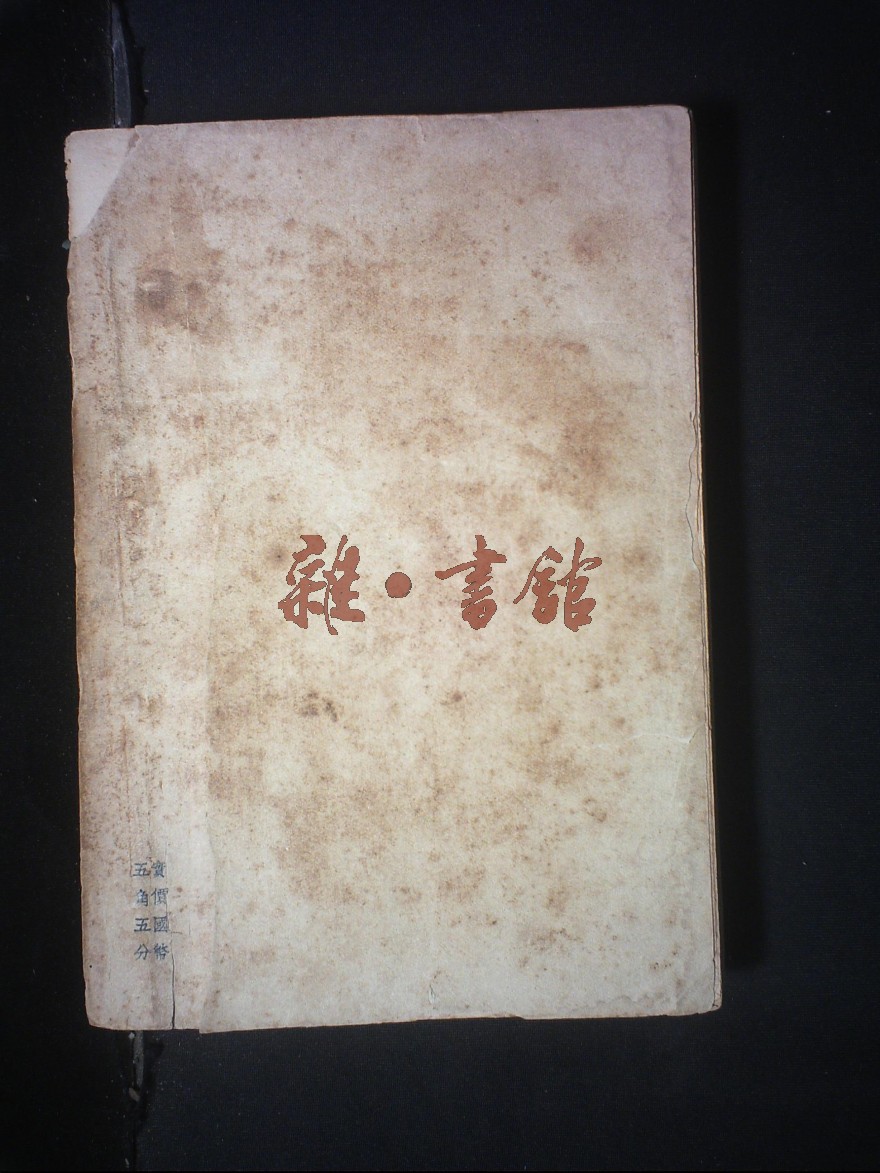 雜·書館
實價國幣
五角五分